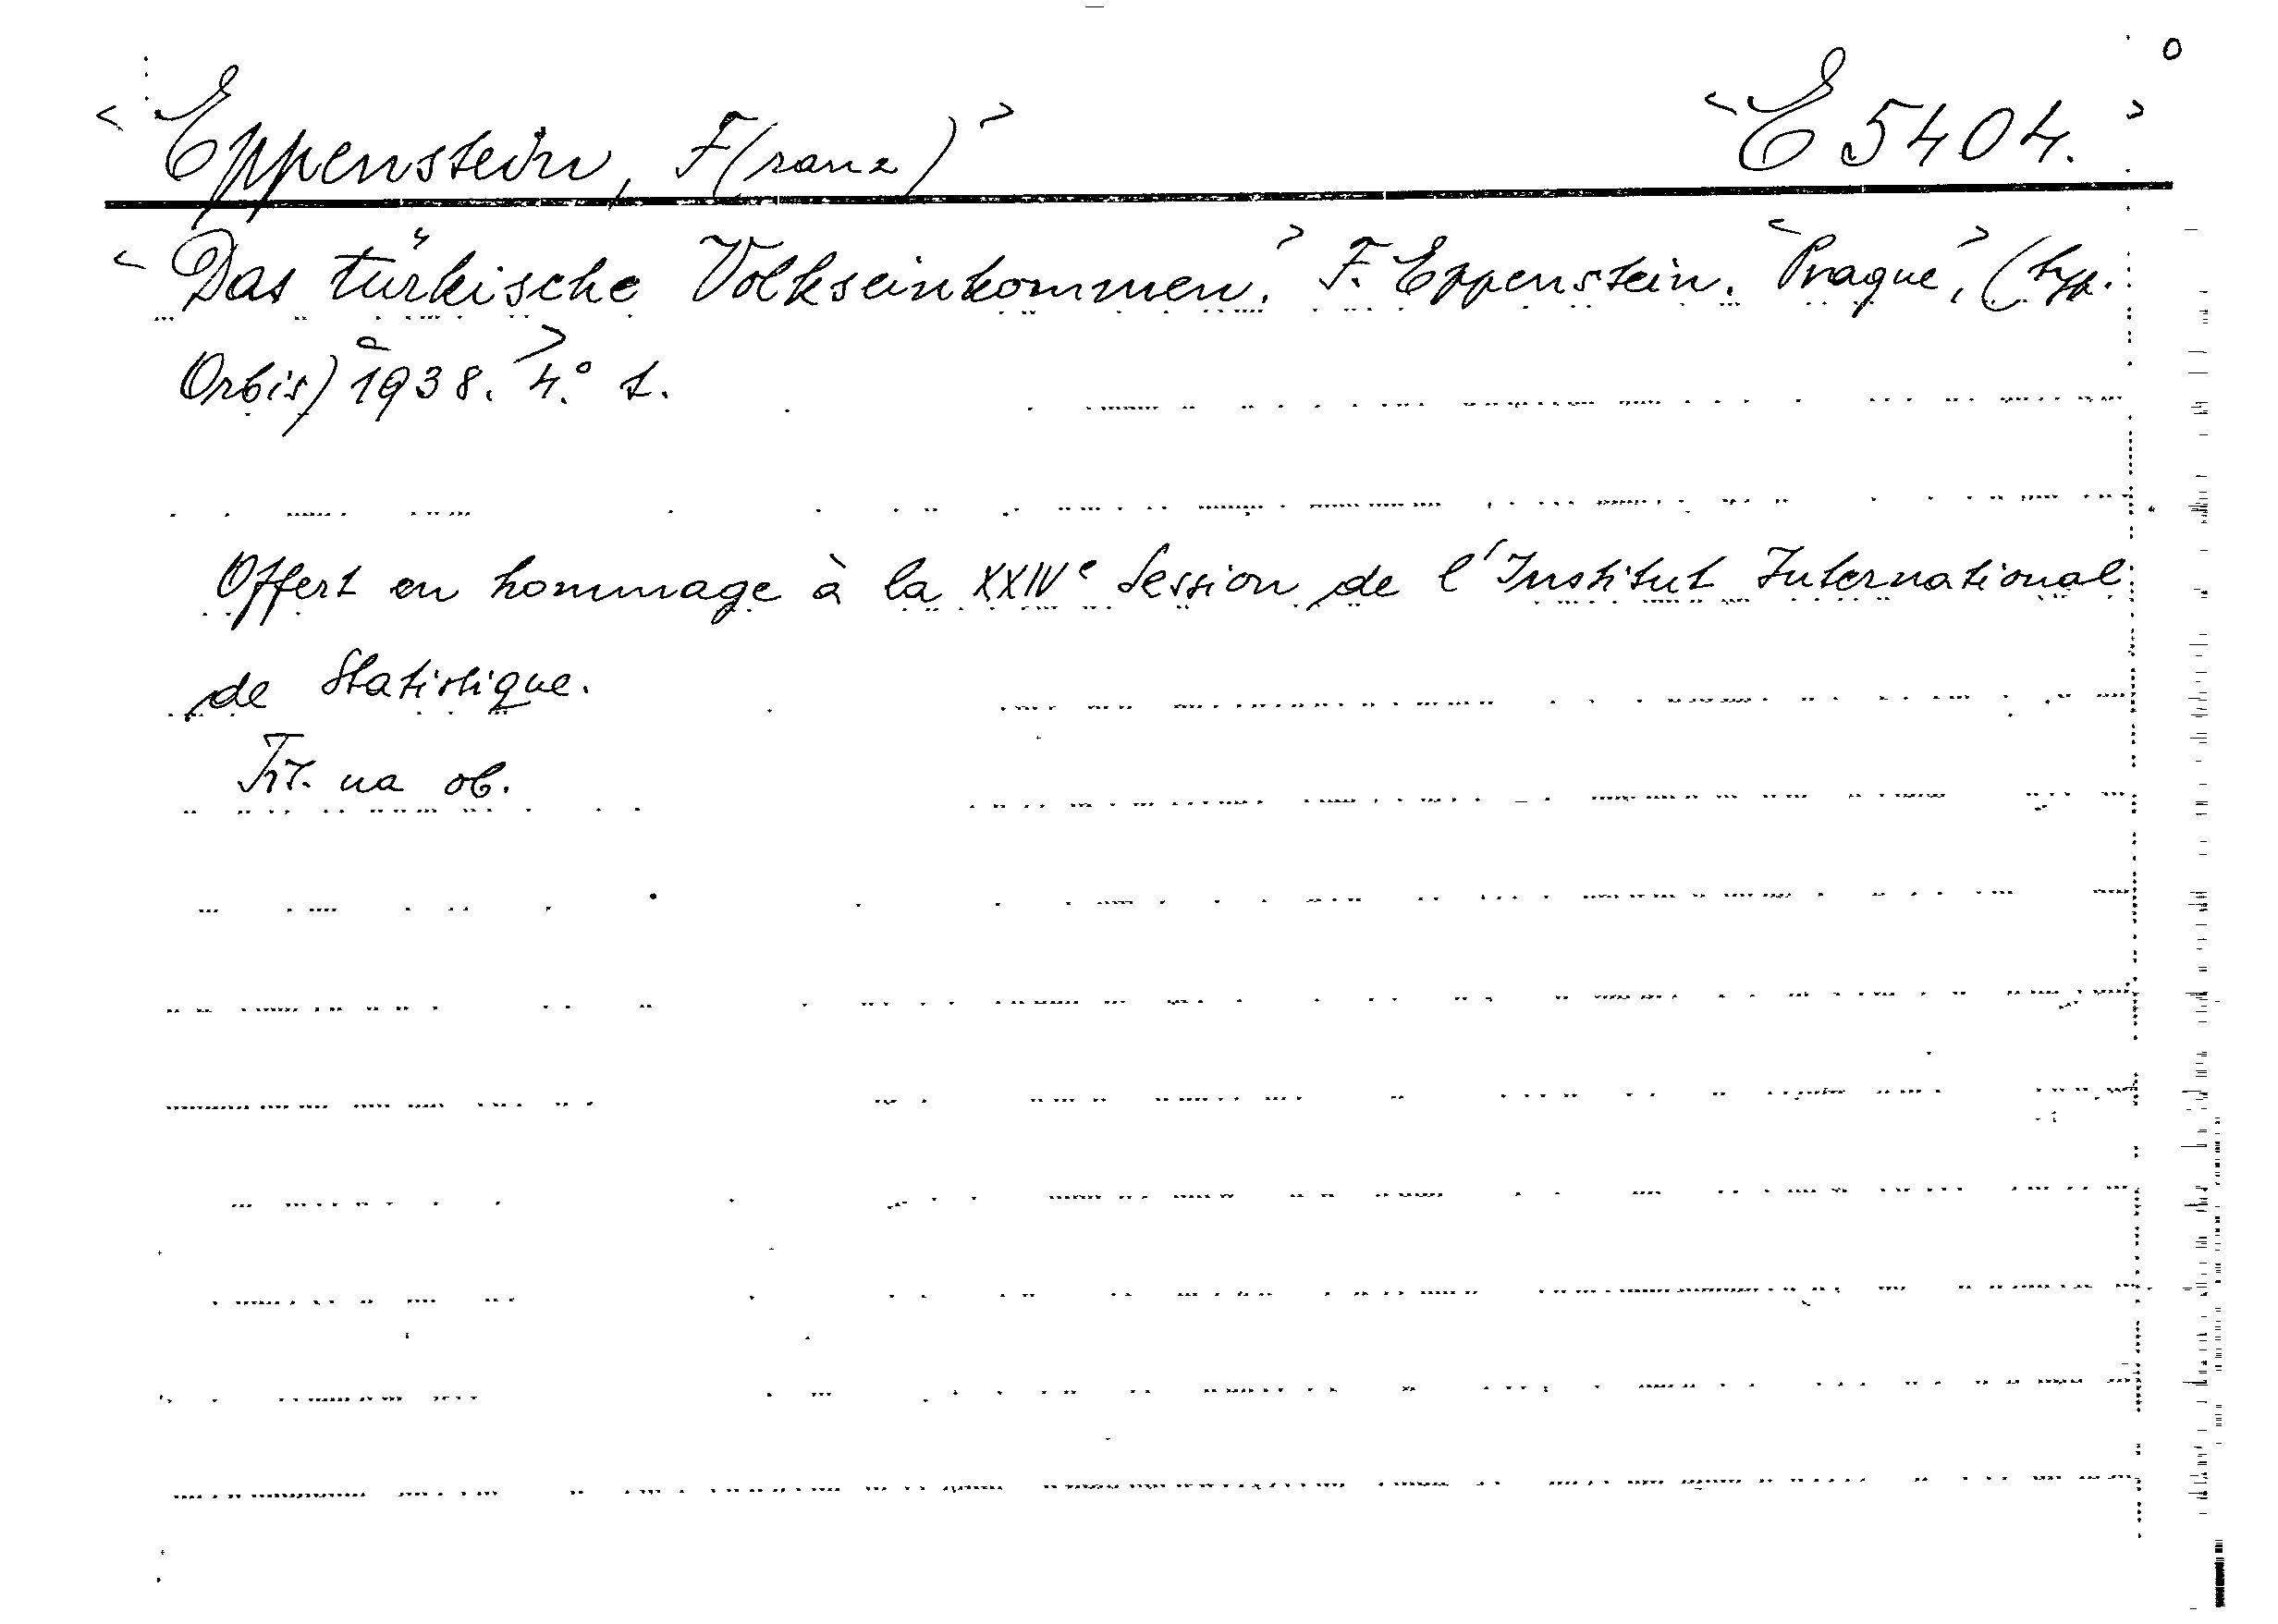 <Eppenstein, F(ranz)> <E 5404.>
<Das türkische Volkseinkommen.> F. Eppenstein. <Prague>, (typ.
Orbis) <1938.> 4.° 1.
Offert en hommage à la XXIVe Session de l'Institut International
de Statistique.
Tit. na ob.